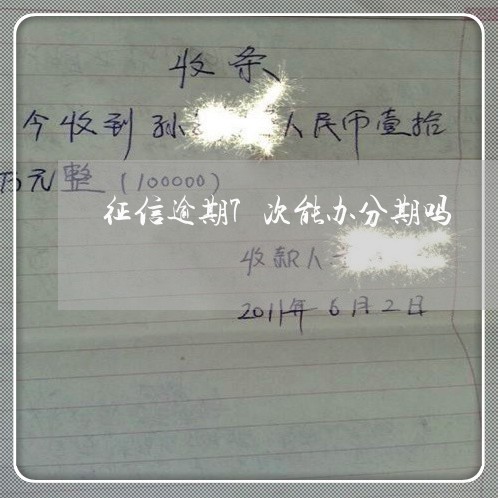 收条
今收到孙 人民币壹拾
万元整(100000)
征信逾期7次能办分期吗
收款人
2011年6月2日